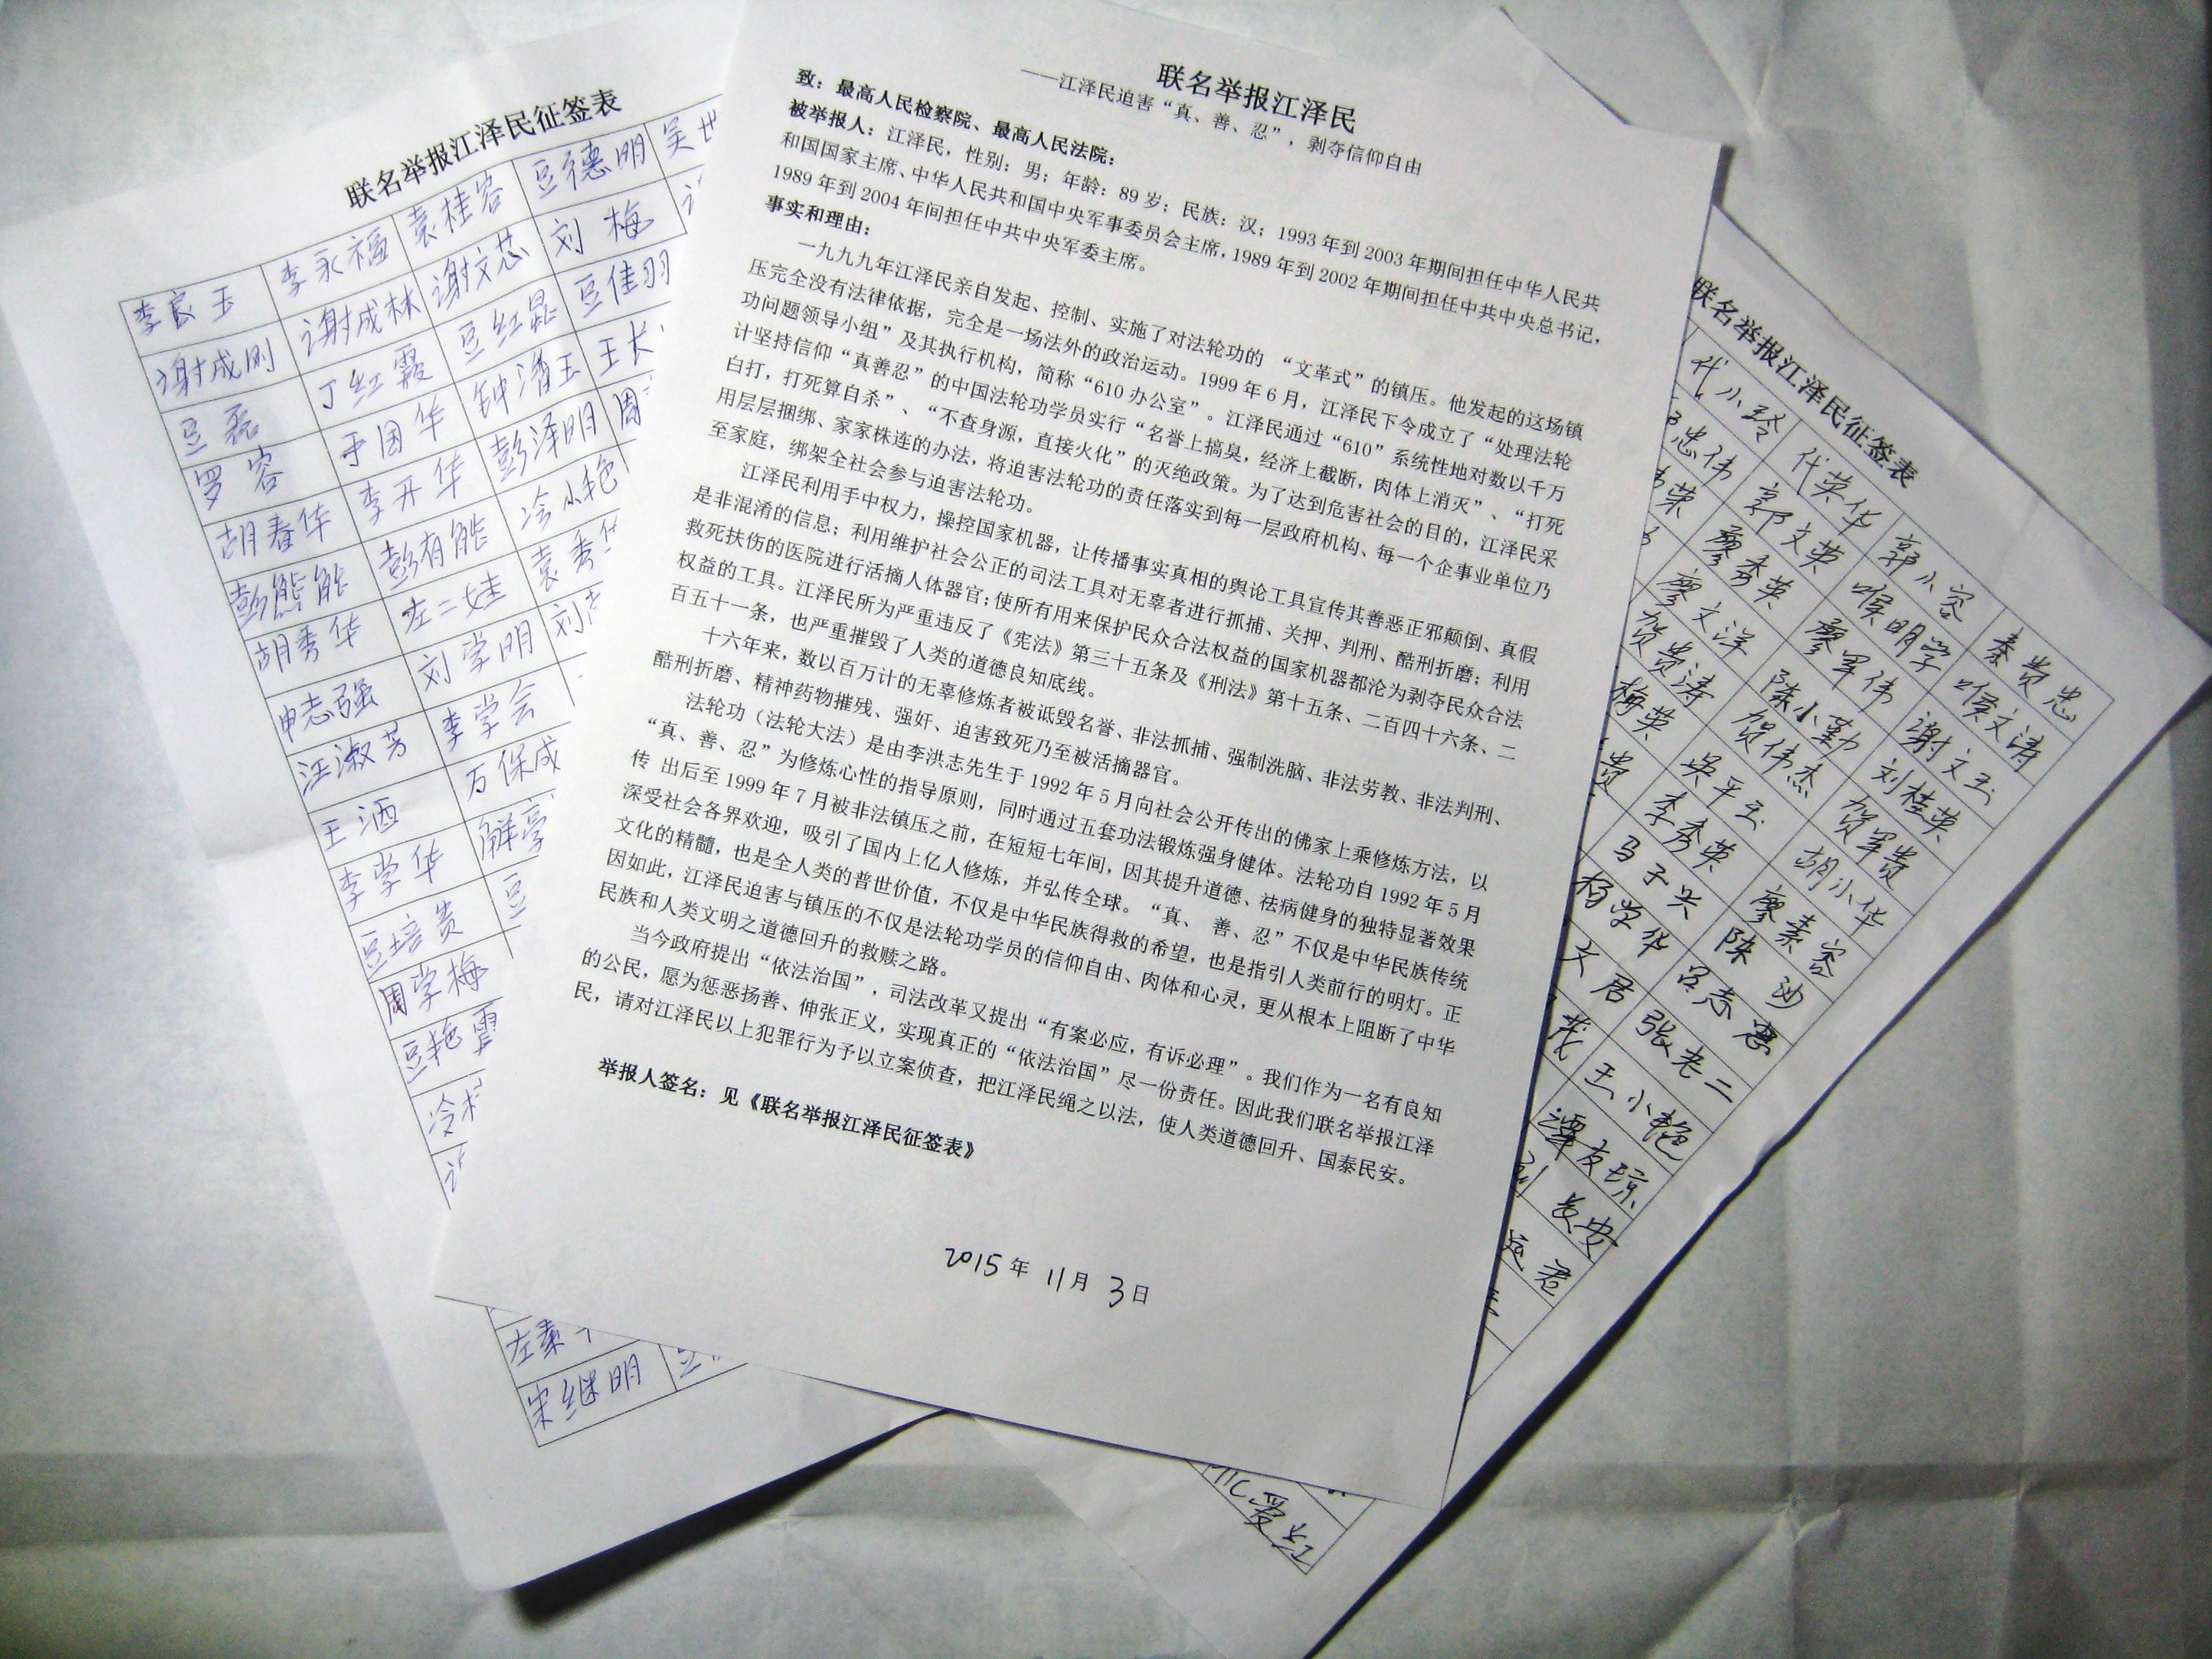 联名举报江泽民征签表
李良玉 李永福 袁桂容 豆德明
谢成刚 谢成林 谢文芯 刘梅
豆磊 丁红霞 豆红昆 豆佳羽
罗容 于国华 钟清玉
胡春华 李开华 彭泽明
彭熊能 彭有能 冷小艳
胡秀华 左二娃
申志强 刘学明
汪淑芳 李学会
王洒 万保成
李学华
豆培贵
周学梅
豆艳
左素
宋继明
联名举报江泽民
——江泽民迫害“真、善、忍”，剥夺信仰自由
致：最高人民检察院、最高人民法院：
被举报人：江泽民，性别：男；年龄：89岁；民族：汉；1993年到2003年期间担任中华人民共
和国国家主席、中华人民共和国中央军事委员会主席，1989年到2002年期间担任中共中央总书记，
1989年到2004年间担任中共中央军委主席。
事实和理由：
一九九九年江泽民亲自发起、控制、实施了对法轮功的“文革式”的镇压。他发起的这场镇
压完全没有法律依据，完全是一场法外的政治运动。1999年6月，江泽民下令成立了“处理法轮
功问题领导小组”及其执行机构，简称“610办公室”。江泽民通过“610”系统性地对数以千万
计坚持信仰“真善忍”的中国法轮功学员实行“名誉上搞臭，经济上截断，肉体上消灭”、“打死
白打，打死算自杀”、“不查身源，直接火化”的灭绝政策。为了达到危害社会的目的，江泽民采
用层层捆绑、家家株连的办法，将迫害法轮功的责任落实到每一层政府机构、每一个企事业单位乃
至家庭，绑架全社会参与迫害法轮功。
江泽民利用手中权力，操控国家机器，让传播事实真相的舆论工具宣传其善恶正邪颠倒、真假
是非混淆的信息；利用维护社会公正的司法工具对无辜者进行抓捕、关押、判刑、酷刑折磨；利用
救死扶伤的医院进行活摘人体器官；使所有用来保护民众合法权益的国家机器都沦为剥夺民众合法
权益的工具。江泽民所为严重违反了《宪法》第三十五条及《刑法》第十五条、二百四十六条、二
百五十一条，也严重摧毁了人类的道德良知底线。
十六年来，数以百万计的无辜修炼者被诋毁名誉、非法抓捕、强制洗脑、非法劳教、非法判刑、
酷刑折磨、精神药物摧残、强奸、迫害致死乃至被活摘器官。
法轮功（法轮大法）是由李洪志先生于1992年5月向社会公开传出的佛家上乘修炼方法，以
“真、善、忍”为修炼心性的指导原则，同时通过五套功法锻炼强身健体。法轮功自1992年5月
传 出后至1999年7月被非法镇压之前，在短短七年间，因其提升道德、祛病健身的独特显著效果
深受社会各界欢迎，吸引了国内上亿人修炼，并弘传全球。“真、善、忍”不仅是中华民族传统
文化的精髓，也是全人类的普世价值，不仅是中华民族得救的希望，也是指引人类前行的明灯。正
因如此，江泽民迫害与镇压的不仅是法轮功学员的信仰自由、肉体和心灵，更从根本上阻断了中华
民族和人类文明之道德回升的救赎之路。
当今政府提出“依法治国”，司法改革又提出“有案必应，有诉必理”。我们作为一名有良知
的公民，愿为惩恶扬善、伸张正义，实现真正的“依法治国”尽一份责任。因此我们联名举报江泽
民，请对江泽民以上犯罪行为予以立案侦查，把江泽民绳之以法，使人类道德回升、国泰民安。
举报人签名：见《联名举报江泽民征签表》
2015年11月3日
联名举报江泽民征签表
代小玲 代英华 郭小容 秦贵忠
忠伟 郭文英 喉明学 喉文涛
廖秀英 廖军伟 谢文玉
廖文洋 陈小勤 刘桂英
贺贵涛 贺伟杰 贺军贵
梅英 吴平玉 胡小华
贵 李秀英 廖素容
马子兴 陈沙
杨学华 吕志惠
文居 张老二
王小艳
谭友琼
长安
君
爱红